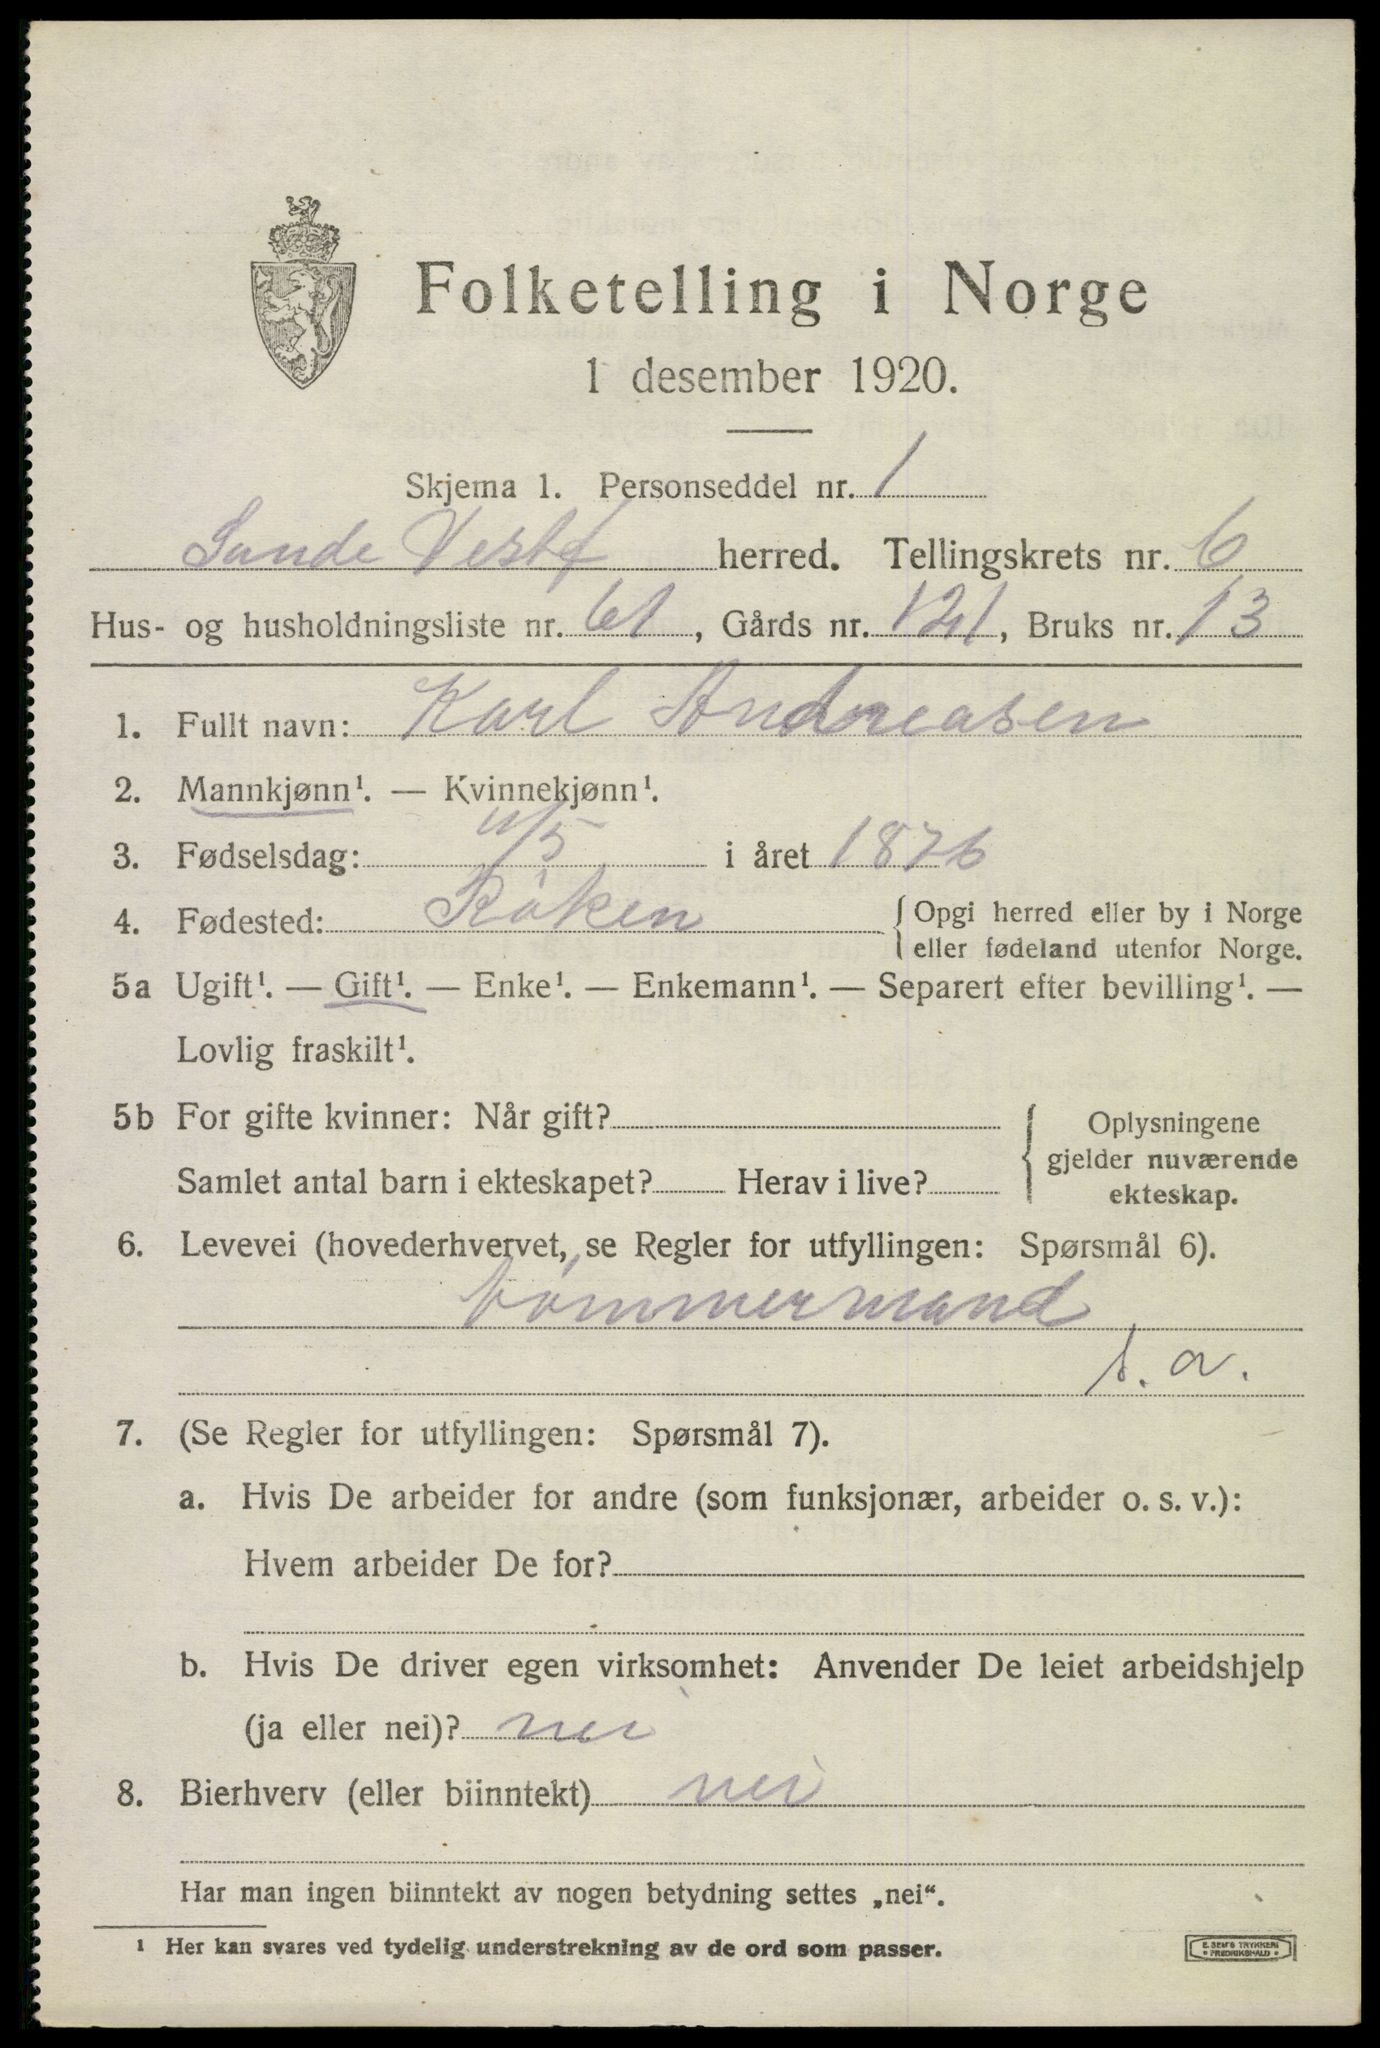 Folketelling i Norge
1 desember 1920.
Skjema 1. Personseddel nr. 1
Sande Vestf herred. Tellingskrets nr. 6
Hus- og husholdningsliste nr. 61, Gårds nr. 121, Bruks nr. 13
1. Fullt navn: Karl Andreasen
2. Mannkjønn¹. — Kvinnekjønn¹.
3. Fødselsdag: 11/5 i året 1876
4. Fødested: Röken { Opgi herred eller by i Norge
eller fødeland utenfor Norge.
5a Ugift¹. — Gift¹. — Enke¹. — Enkemann¹. — Separert efter bevilling¹. —
Lovlig fraskilt¹.
5b For gifte kvinner: Når gift?
Samlet antal barn i ekteskapet? Herav i live?
{ Oplysningene
gjelder nuværende
ekteskap.
6. Levevei (hovederhvervet, se Regler for utfyllingen: Spørsmål 6).
tömmermand
s. a.
7. (Se Regler for utfyllingen: Spørsmål 7).
a. Hvis De arbeider for andre (som funksjonær, arbeider o. s. v.):
Hvem arbeider De for?
b. Hvis De driver egen virksomhet: Anvender De leiet arbeidshjelp
(ja eller nei)? nei
8. Bierhverv (eller biinntekt) nei
Har man ingen biinntekt av nogen betydning settes „nei“.
¹ Her kan svares ved tydelig understrekning av de ord som passer.
E. SEM'S TRYKKERI
• FREDRIKSHALD •